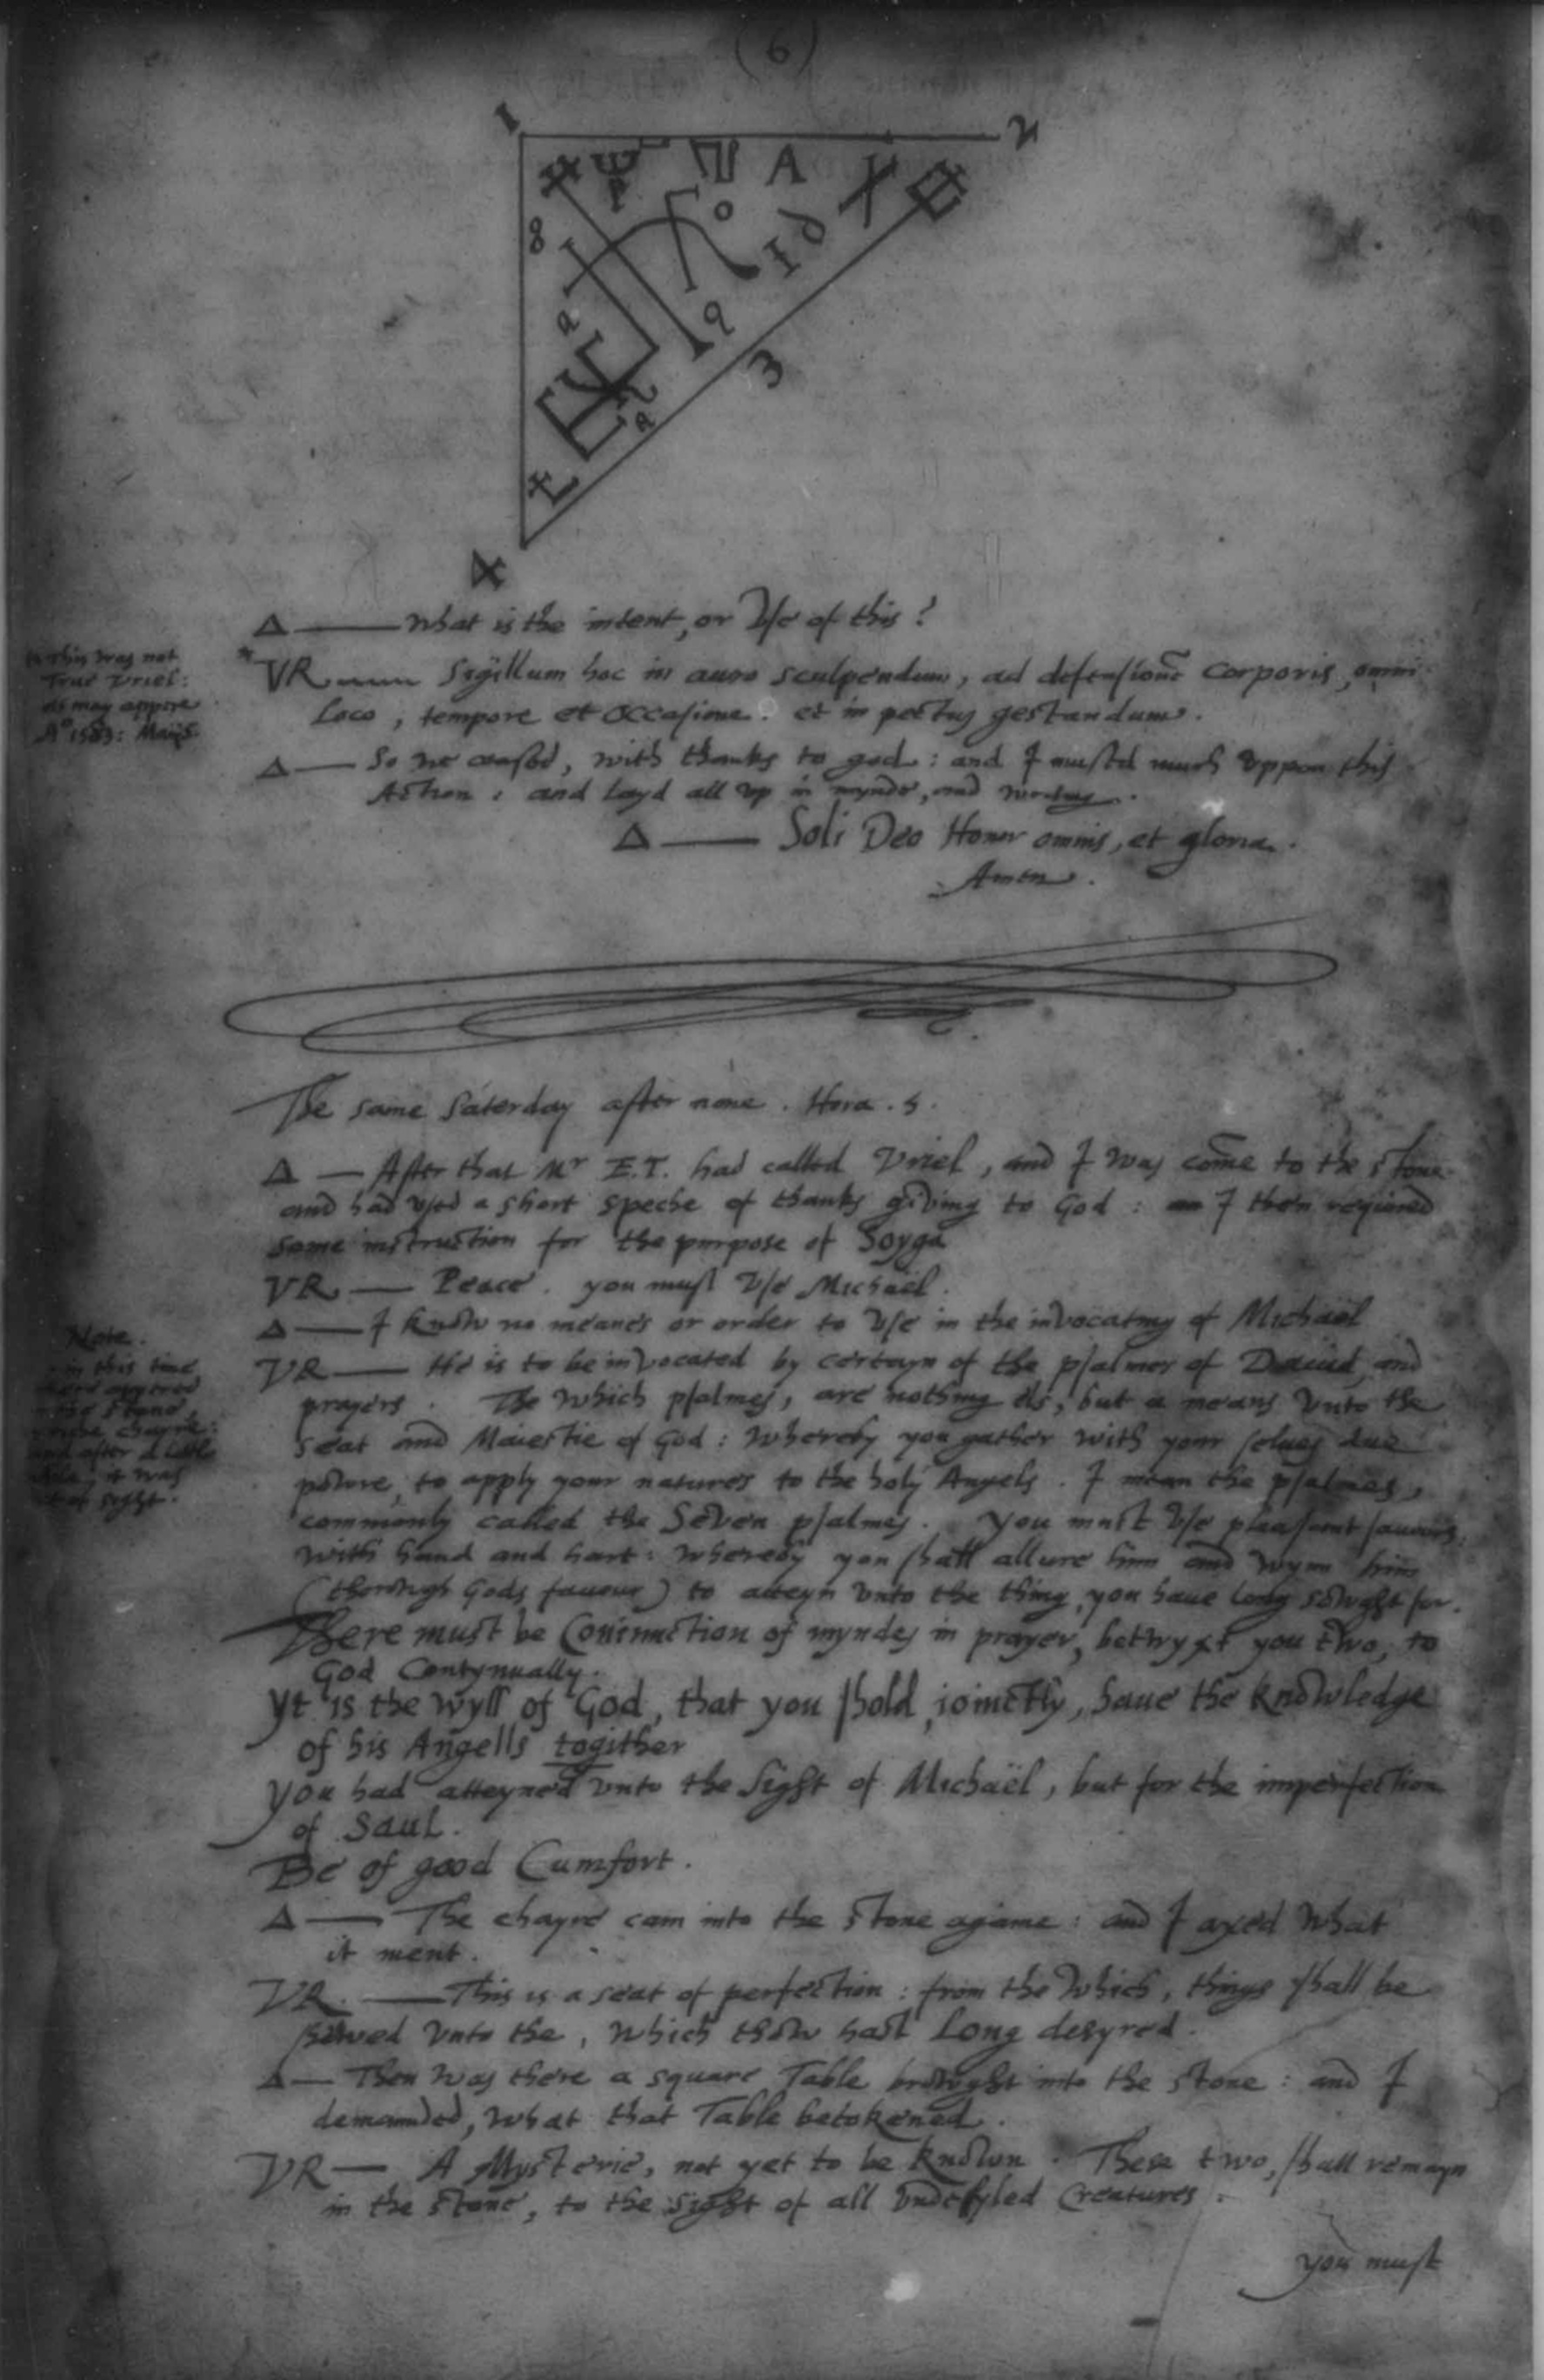 (6)
1
2
A
8
3
4
Δ —— What is the intent, or Vse of this?
* This was not
true Vriel:
as may appere
A° 1583: Maij 5
* VR —— Sigillum hoc in auro sculpendum, ad defensionē Corporis, omni
Loco, tempore et Occasione. et in pectus gestandum.
Δ — So we ceased, with thanks to god: and I mused much vppon this
Action: and layd all vp in mynde, and writing.
Δ —— Soli Deo Honor omnis, et gloria.
Amen.
The same Saterday after none. Hora. 5.
Δ — After that Mr E.T. had called Vriel, and I was come to the stone
and had vsed a short speche of thanks giving to God: I then required
some instruction for the purpose of Soyga
VR — Peace. you must Vse Michaël.
Δ — I know no meanes or order to Vse in the invocating of Michaël
Note.
in this time
there appered
the stone,
chayre:
and after a litle
while, it was
out of sight.
VR — He is to be invocated by certayn of the psalmes of Dauid, and
prayers. The which psalmes, are nothing els, but a means vnto the
seat and Maiestie of God: Whereby you gather with your selues due
powre, to apply your natures to the holy Angels. I mean the psalmes,
commonly called the Seven psalmes. You must Vse pleasant sauours:
with hand and hart: Whereby you shall allure him and wynn him
(thorowgh Gods fauour) to atteyn vnto the thing, you haue long sowght for.
There must be Coniunction of myndes in prayer, betwyxt you two, to
God Contynually.
Yt is the wyll of God, that you shold, ioinctly, haue the knowledge
of his Angells togither
You had atteyned vnto the Sight of Michaël, but for the imperfection
of Saul.
Be of good Cumfort.
Δ — The chayre cam into the stone againe: and I axed what
it ment.
VR. — This is a seat of perfection: from the which, things shall be
shewed vnto the, which thow hast Long desyred.
Δ — Then was there a square Table browght into the stone: and I
demaunded, what that Table betokened.
VR — A Mysterie, not yet to be knowen. These two, shall remayn
in the stone, to the sight of all vndefyled Creatures.
you must